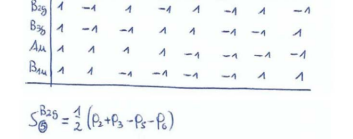 B2g 1 -1 1 -1 1 -1 1 -1
B3g 1 -1 -1 1 1 -1 -1 1
Au 1 1 1 1 -1 -1 -1 -1
B1u 1 1 -1 -1 -1 -1 1 1
S^B2g = 1/2 (P2+P3-P5-P6)